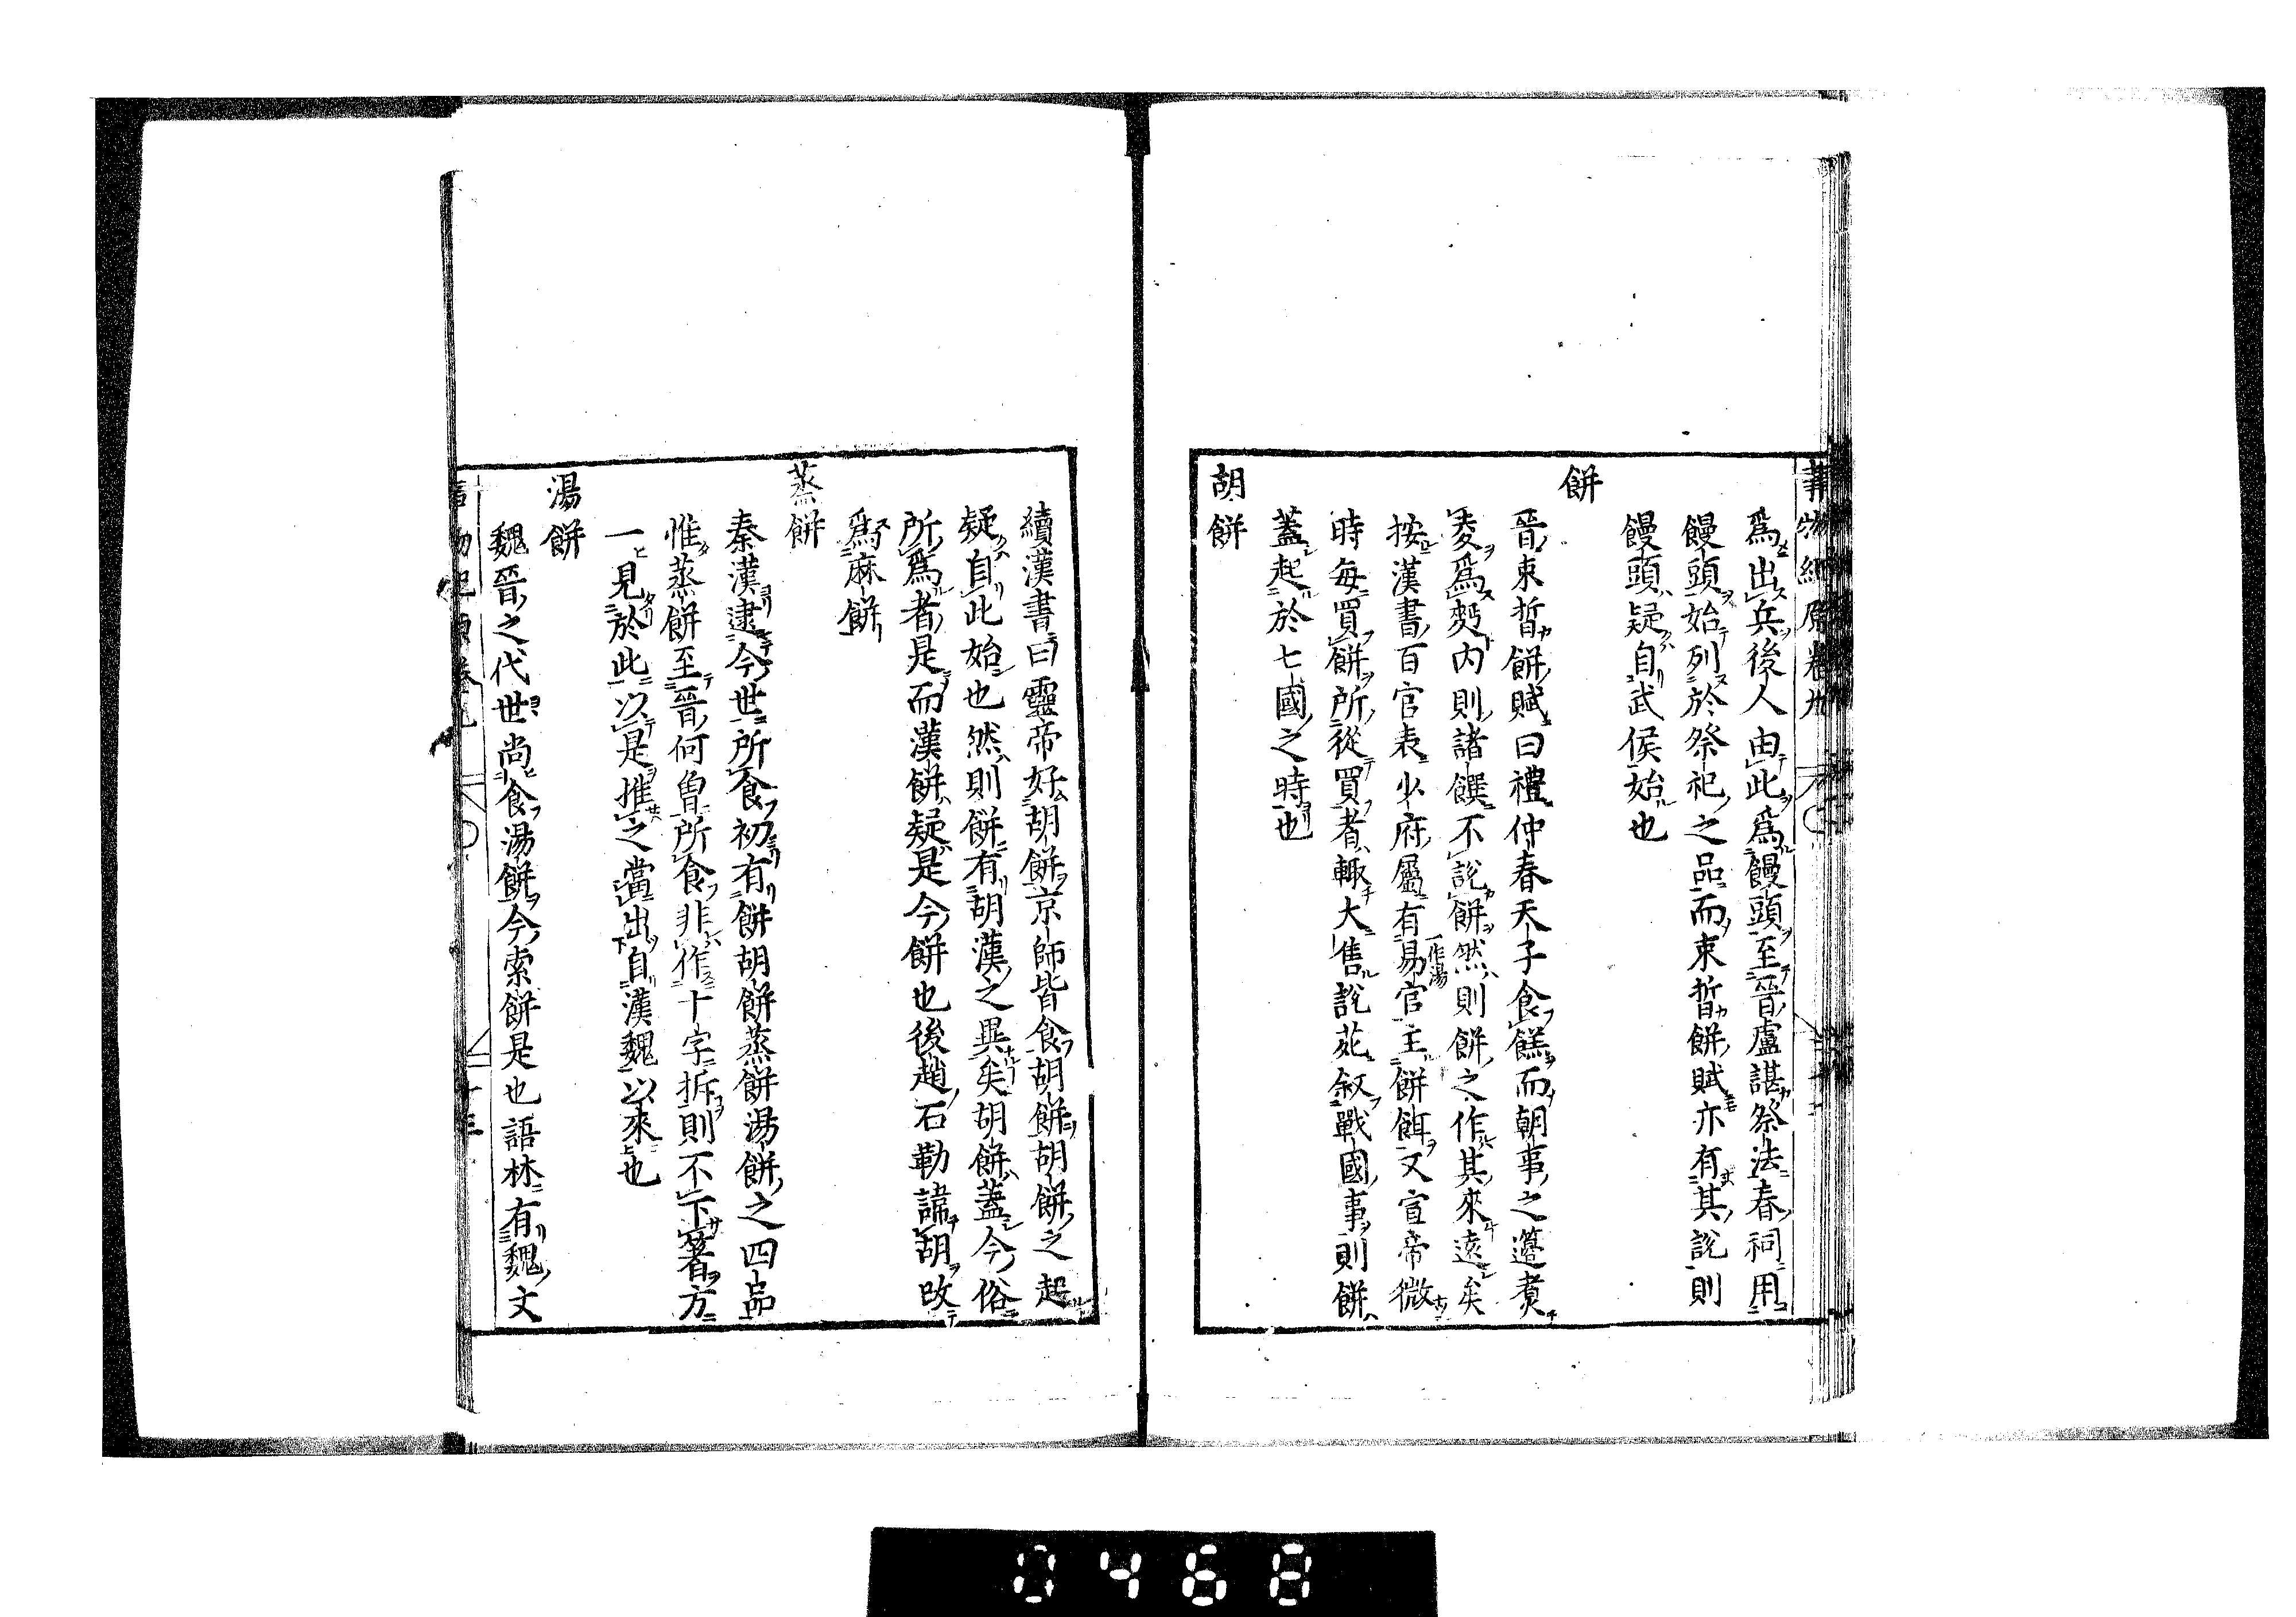 事物紀原卷九
爲出兵後人由此爲饅頭至晉盧諶祭法春祠用
饅頭始列於祭祀之品而束皙餅賦亦有其說則
饅頭疑自武侯始也
餅
晉束皙餅賦曰禮仲春天子食餻而朝事之籩煑
麥爲麪內則諸饌不說餅然則餅之作其來遠矣
按漢書百官表少府屬有易官主餅餌又宣帝微
一作湯
時每買餅所從買者輙大售說苑叙戰國事則餅
蓋起於七國之時也
胡餅
續漢書曰靈帝好胡餅京師皆食胡餅胡餅之起
疑自此始也然則餅有胡漢之異矣胡餅蓋今俗
所爲者是而漢餅疑是今餅也後趙石勒諱胡改
爲麻餅
蒸餅
秦漢逮今世所食初有餅胡餅蒸餅湯餅之四品
惟蒸餅至晉何曾所食非作十字拆則不下箸方
一見於此以是推之當出自漢魏以來也
湯餅
魏晉之代世尚食湯餅今索餅是也語林有魏文
十三
0468